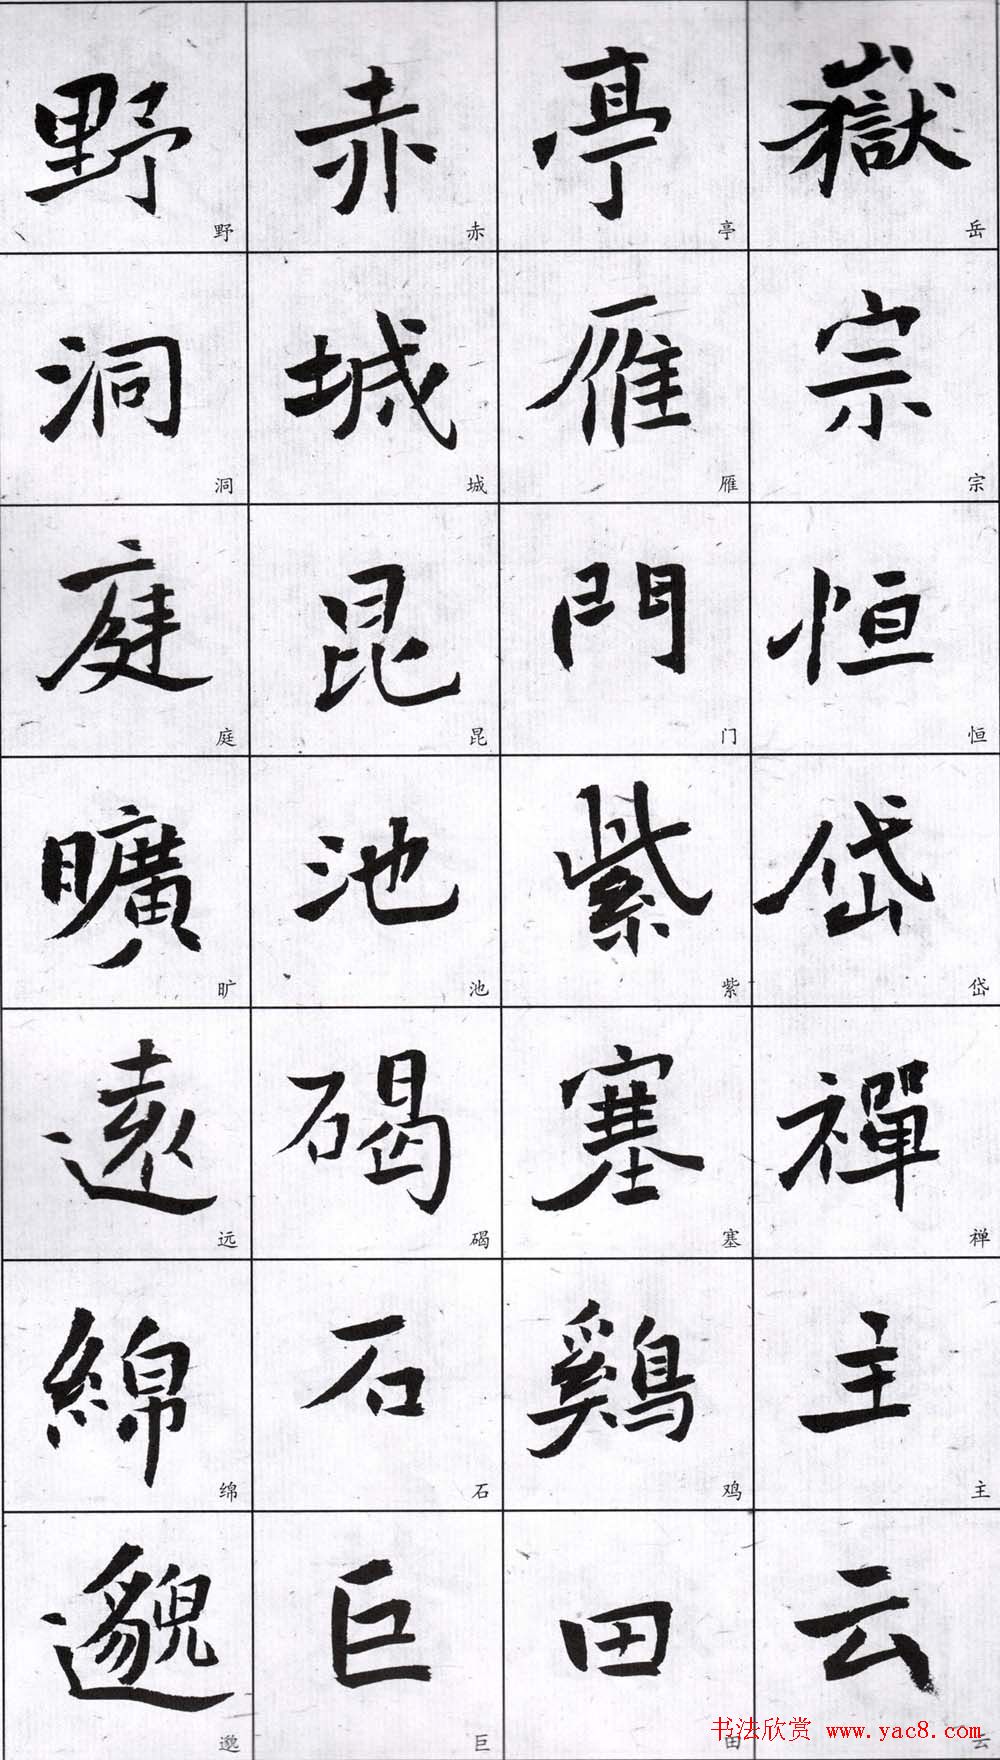 嶽宗恒岱禪主云
岳宗恒岱禅主云
亭雁門紫塞鷄田
亭雁门紫塞鸡田
赤城昆池碣石巨
赤城昆池碣石巨
野洞庭曠遠綿邈
野洞庭旷远绵邈
书法欣赏 www.yac8.com